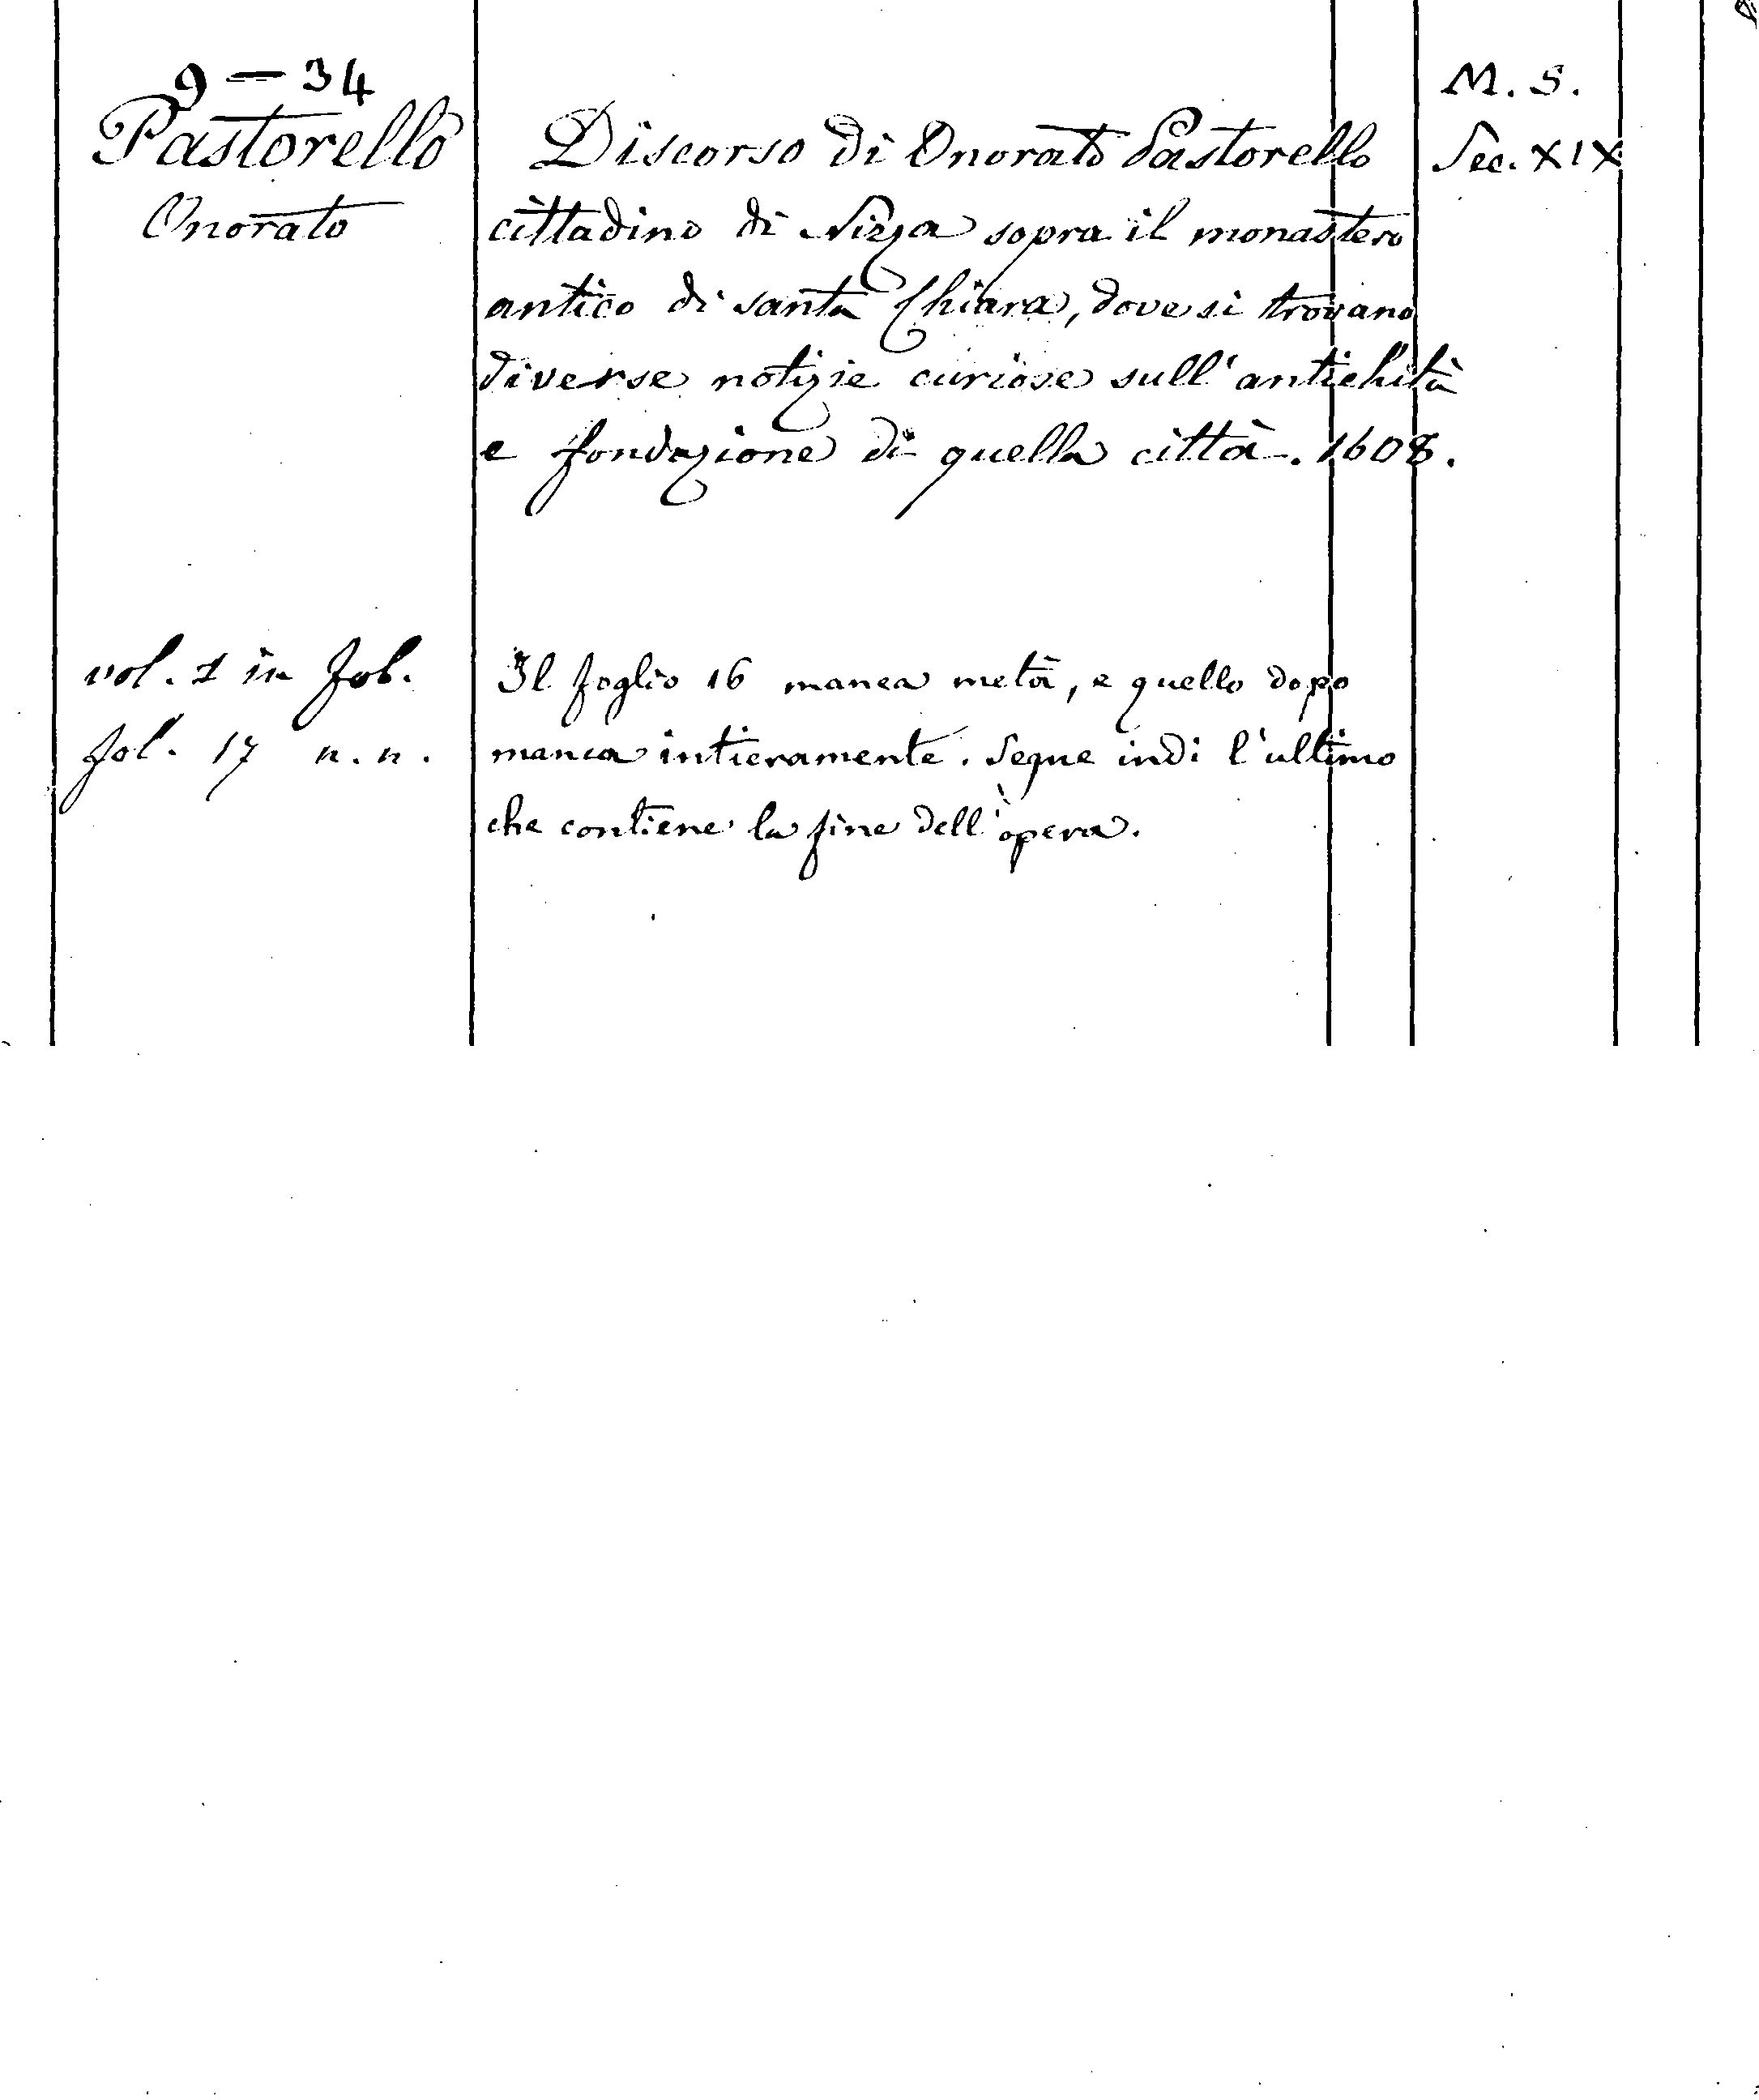 9 — 34
Pastorello
Onorato
Discorso di Onorato Pastorello
cittadino di Nizza sopra il monastero
antico di santa Chiara, dove si trovano
diverse notizie curiose sull'antichità
e fondazione di quella città. 1608.
M. S.
Sec. XIX
vol. 1 in fol.
fol. 17 n. n.
Il foglio 16 manca metà, e quello dopo
manca intieramente. Segue indi l'ultimo
che contiene la fine dell'opera.